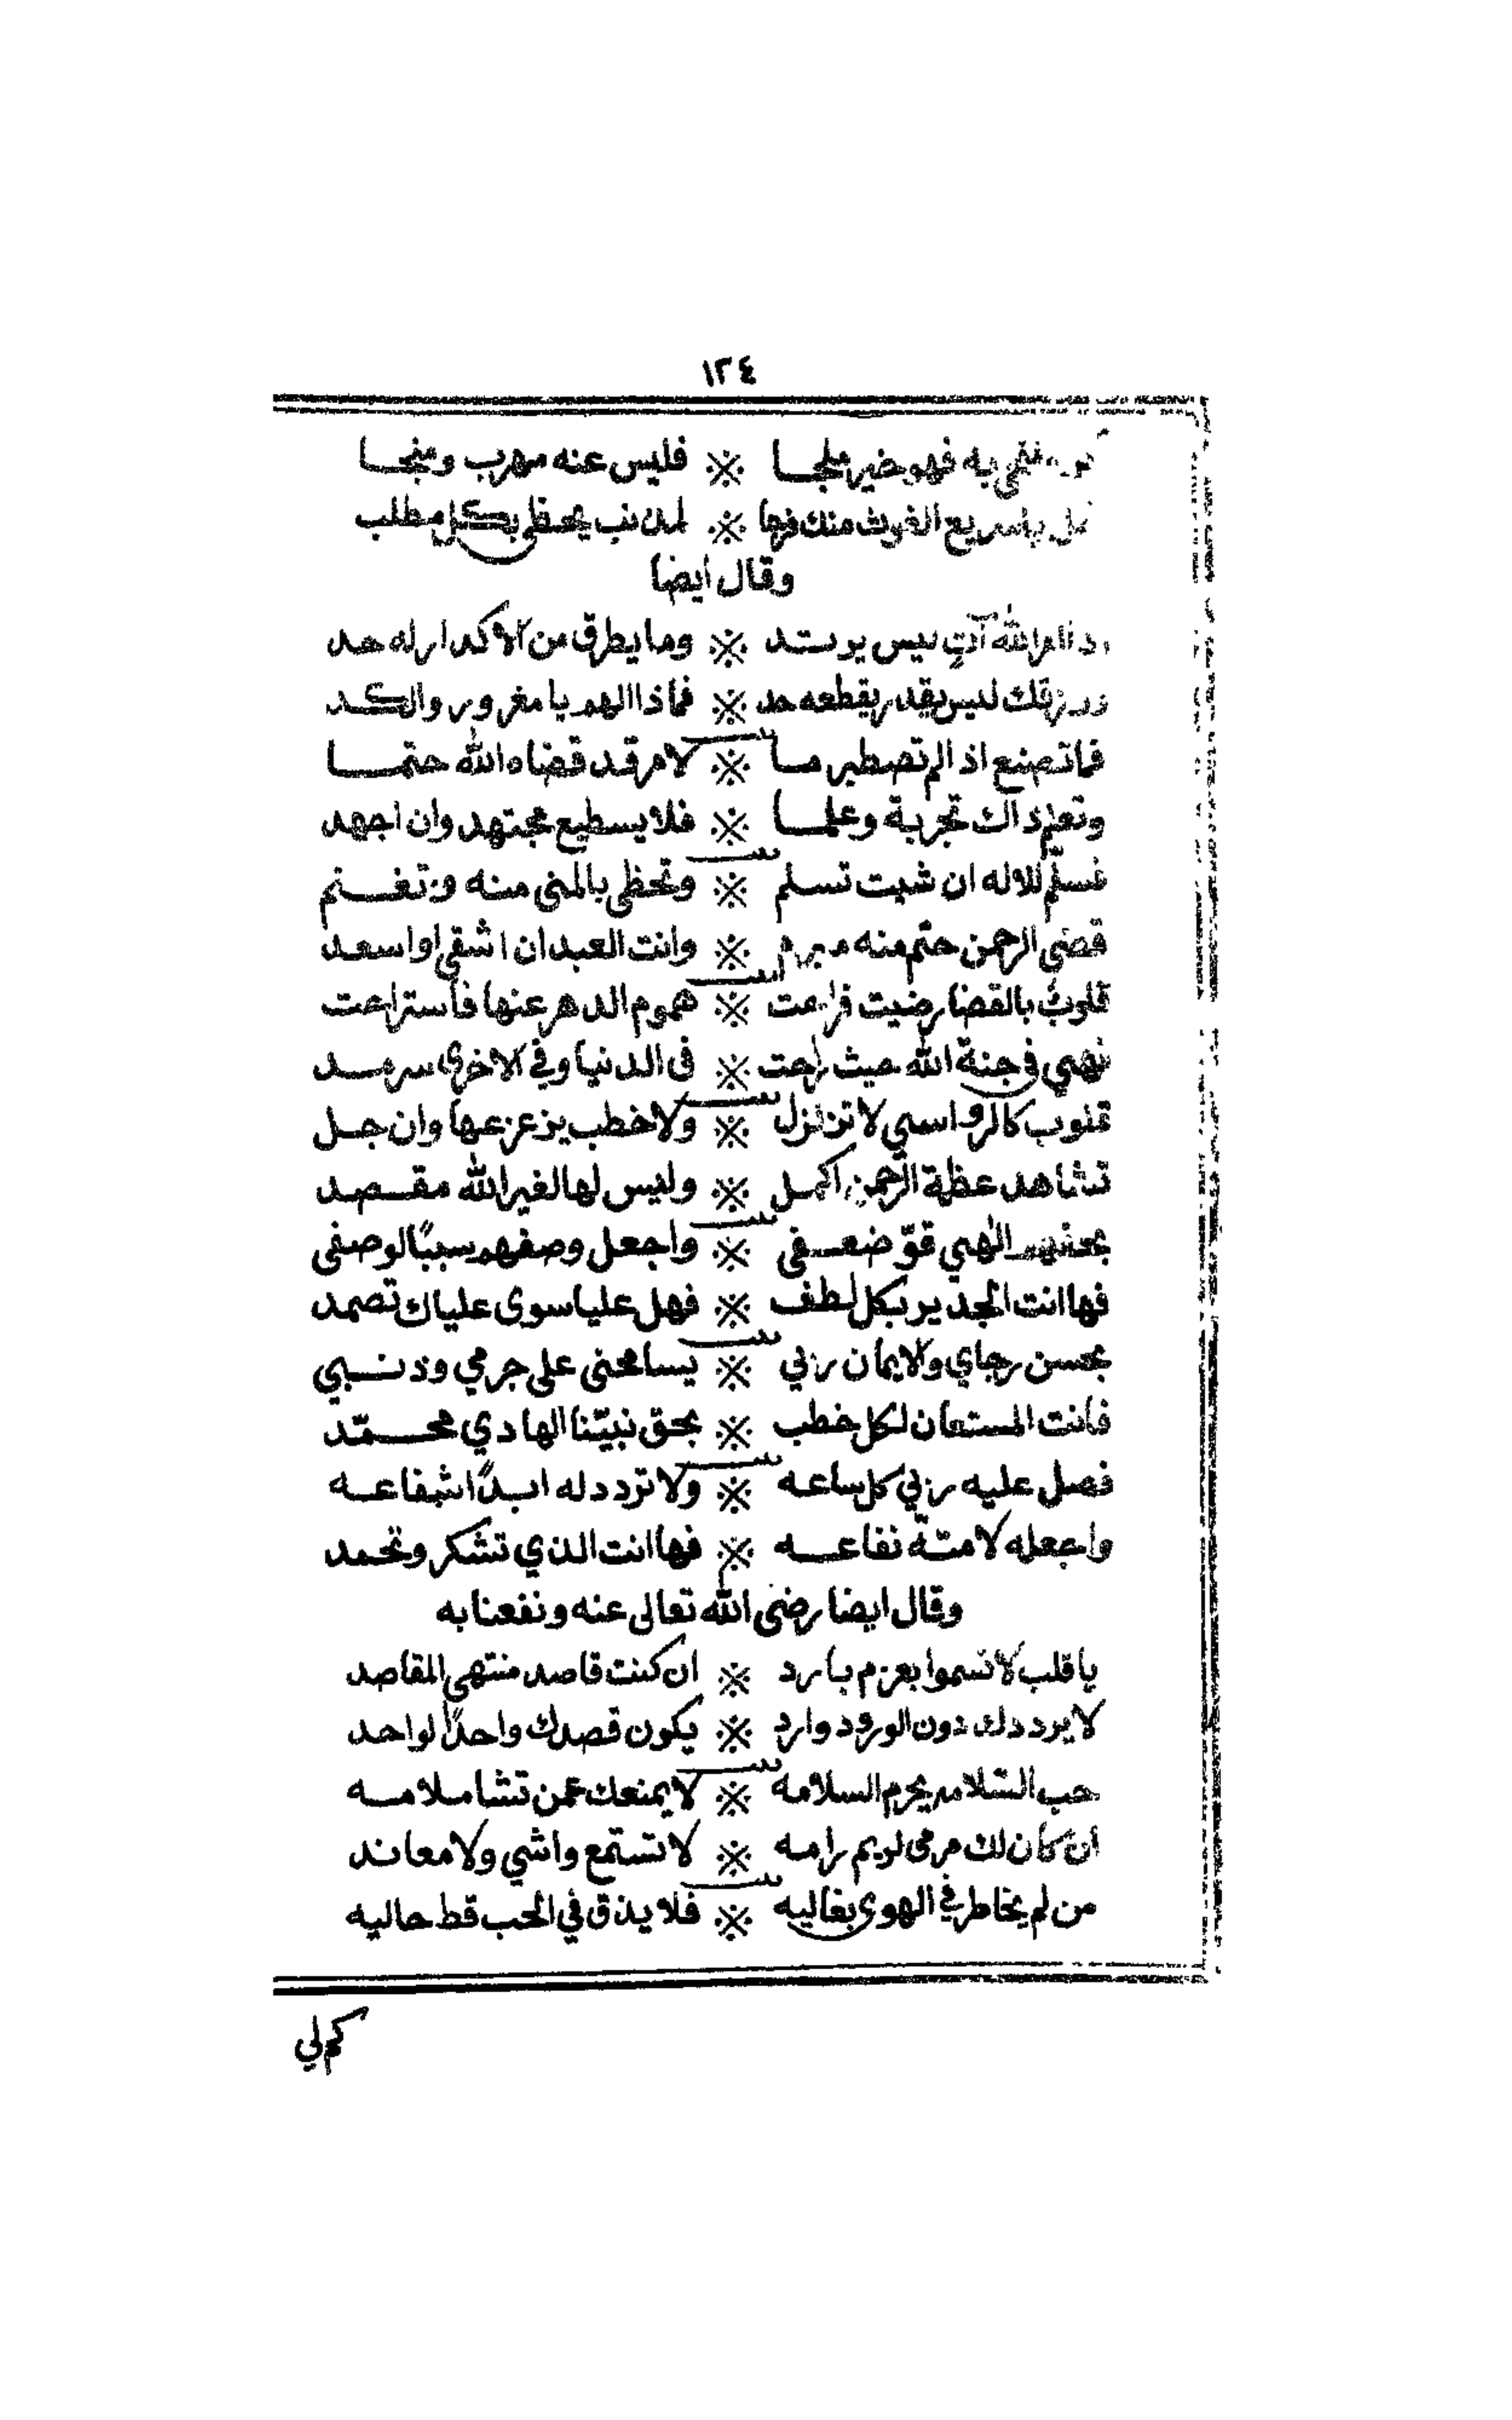 ١٢٤
به فهو خير ملجا ※ فليس عنه مهرب ومنجا
سريع الغوث منك فرجا ※ لمذنب يحظى بكل مطلب
وقال ايضا
الله آتٍ ليس يرتد ※ وما يطرق من الاكدار له حد
رزقك ليس يقدر يقطعه حد ※ فماذا الهم يا مغرور والكد
فما تصنع اذا لم تصطبر ما ※ لامر قد قضاه الله حتما
وتعلم ذاك تجربة وعلما ※ فلا يسطيع مجتهد وان اجهد
فسلّم للاله ان شيت تسلم ※ وتحظى بالمنى منه وتغنم
قضى الرحمن حتم منه مبرم ※ وانت العبد ان اشقى او اسعد
قلوبٌ بالقضا رضيت فراحت ※ هموم الدهر عنها فاستراحت
فهي في جنة الله حيث راحت ※ في الدنيا وفي الاخرى سرمد
قلوب كالرواسي لا تزلزل ※ ولا خطب يزعزعها وان جل
تشاهد عظمة الرحمن اكمل ※ وليس لها لغير الله مقصد
بحقهم الٰهي قوّ ضعفي ※ واجعل وصفهم سببًا لوصفى
فها انت الجدير بكل لطف ※ فهل عليا سوى علياك تصمد
بحسن رجاي والايمان ربي ※ يسامحنى على جرمي وذنبي
فانت المستعان لكل خطب ※ بحق نبيّنا الهادي محمّد
فصل عليه ربي كل ساعه ※ ولا تردد له ابدًا شفاعه
واجعله لامتهّ نفاعه ※ فها انت الذي تشكر وتحمد
وقال ايضا رضى الله تعالى عنه ونفعنا به
يا قلب لا تسموا بعزم بارد ※ ان كنت قاصد منتهى المقاصد
لا يردك دون الورود وارد ※ يكون قصدك واحدًا لواحد
حب السّلامه يحرم السلامه ※ لا يمنعك عمن تشا ملامه
ان كان لك مرمى لريم رامه ※ لا تستمع واشي ولا معاند
من لم يخاطر في الهوى بغاليه ※ فلا يذق في الحب قط حاليه
كم لي